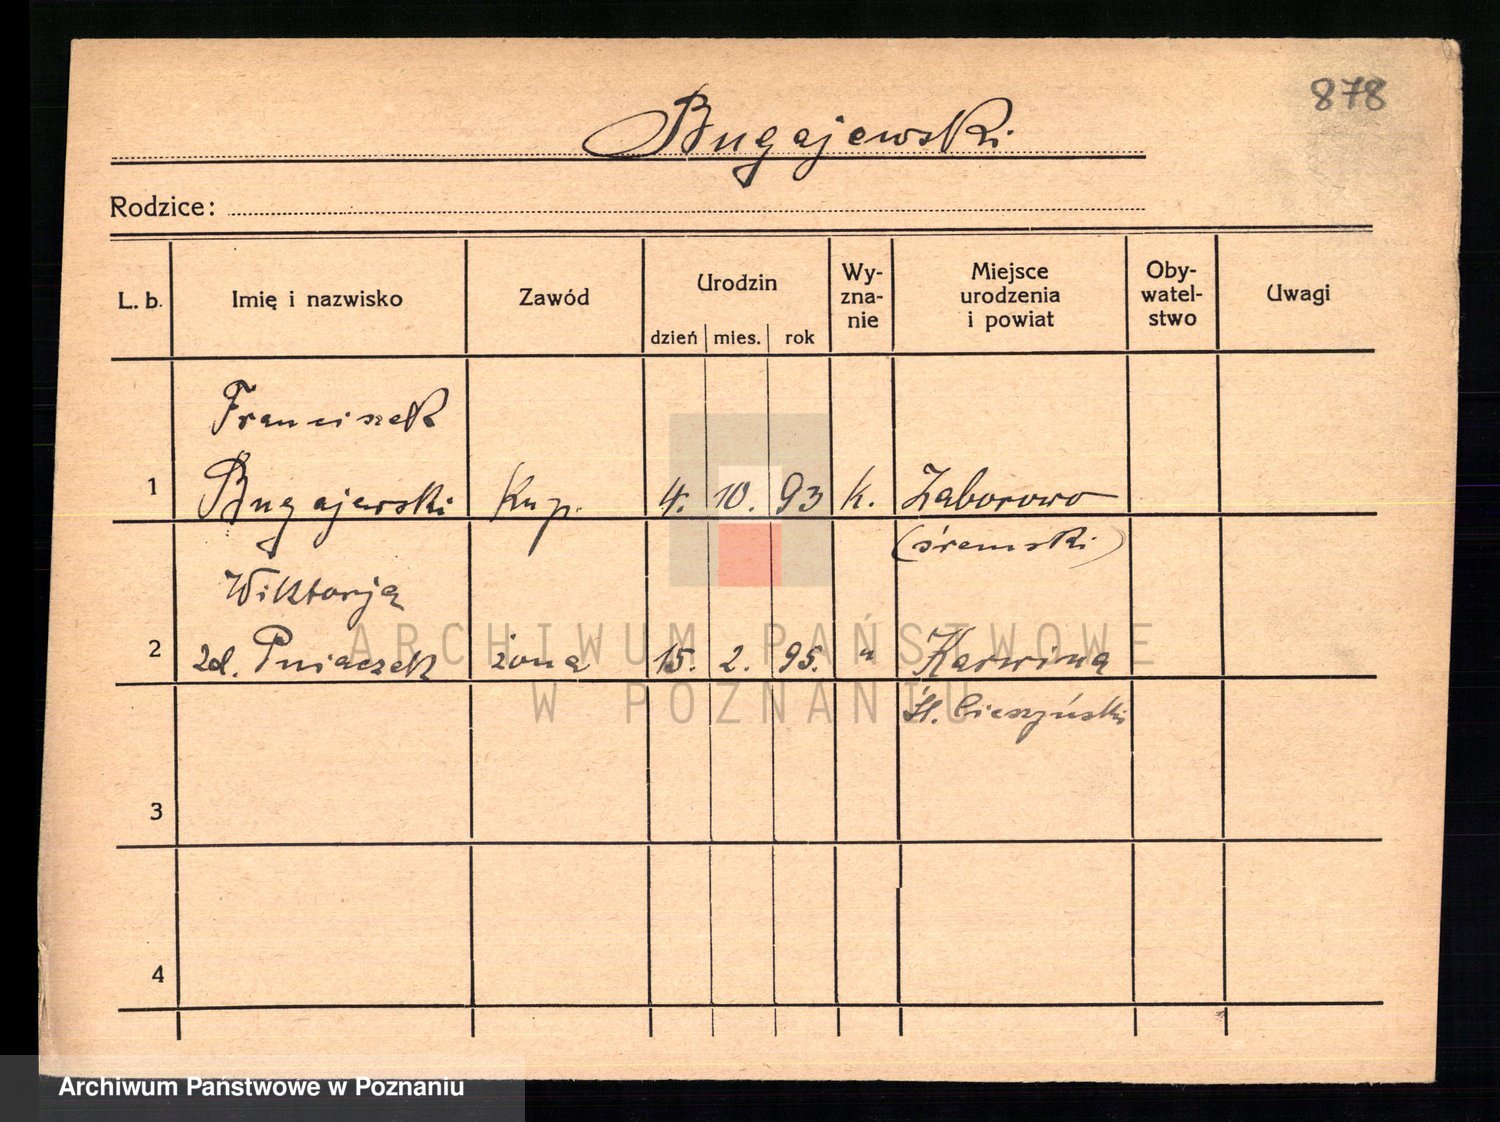 878
Bugajewski
Rodzice:
L. b.
Imię i nazwisko
Zawód
Urodzin
dzień mies. rok
Wy-
zna-
nie
Miejsce
urodzenia
i powiat
Oby-
watel-
stwo
Uwagi
Franciszek
1 Bugajewski Kup. 4. 10. 93 k. Zaborowo
(śremski)
Wiktorja
2 zd. Pniaczek żona 15. 2. 95. " Karwina
Śl. Cieszyński
3
4
ARCHIWUM PAŃSTWOWE
W POZNANIU
Archiwum Państwowe w Poznaniu